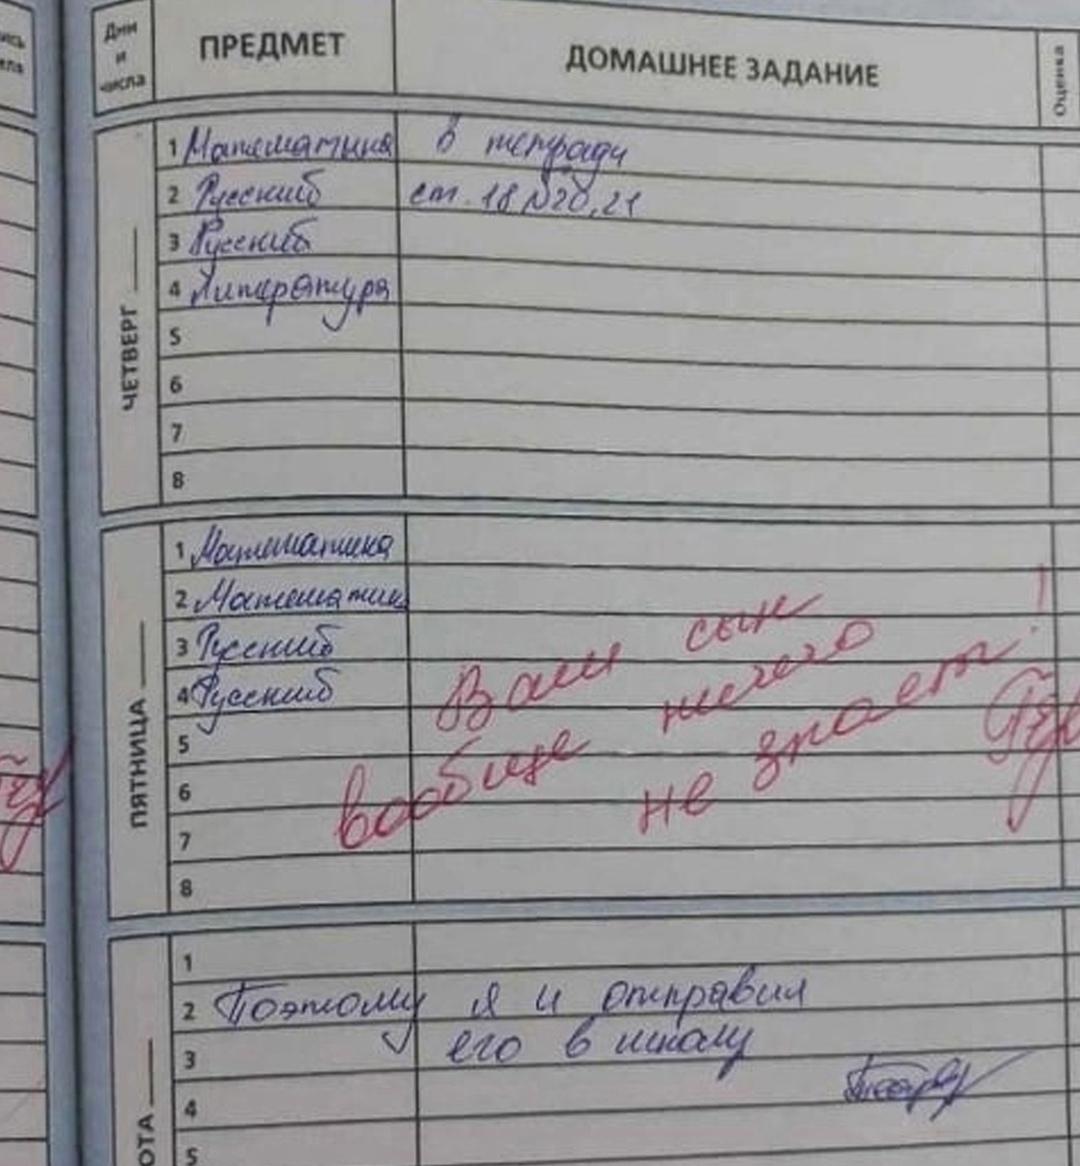 Дни и числа ПРЕДМЕТ ДОМАШНЕЕ ЗАДАНИЕ Оценка
ЧЕТВЕРГ
1 Математика в тетради
2 Русский ст. 18 №20,21
3 Русский
4 Литература
5
6
7
8
ПЯТНИЦА
1 Математика
2 Математика
3 Русский
4 Русский
5
6
7
8
Ваш сын
вообще ничего
не знает!
1
2 Поэтому я и отправил
3 его в школу
4
5